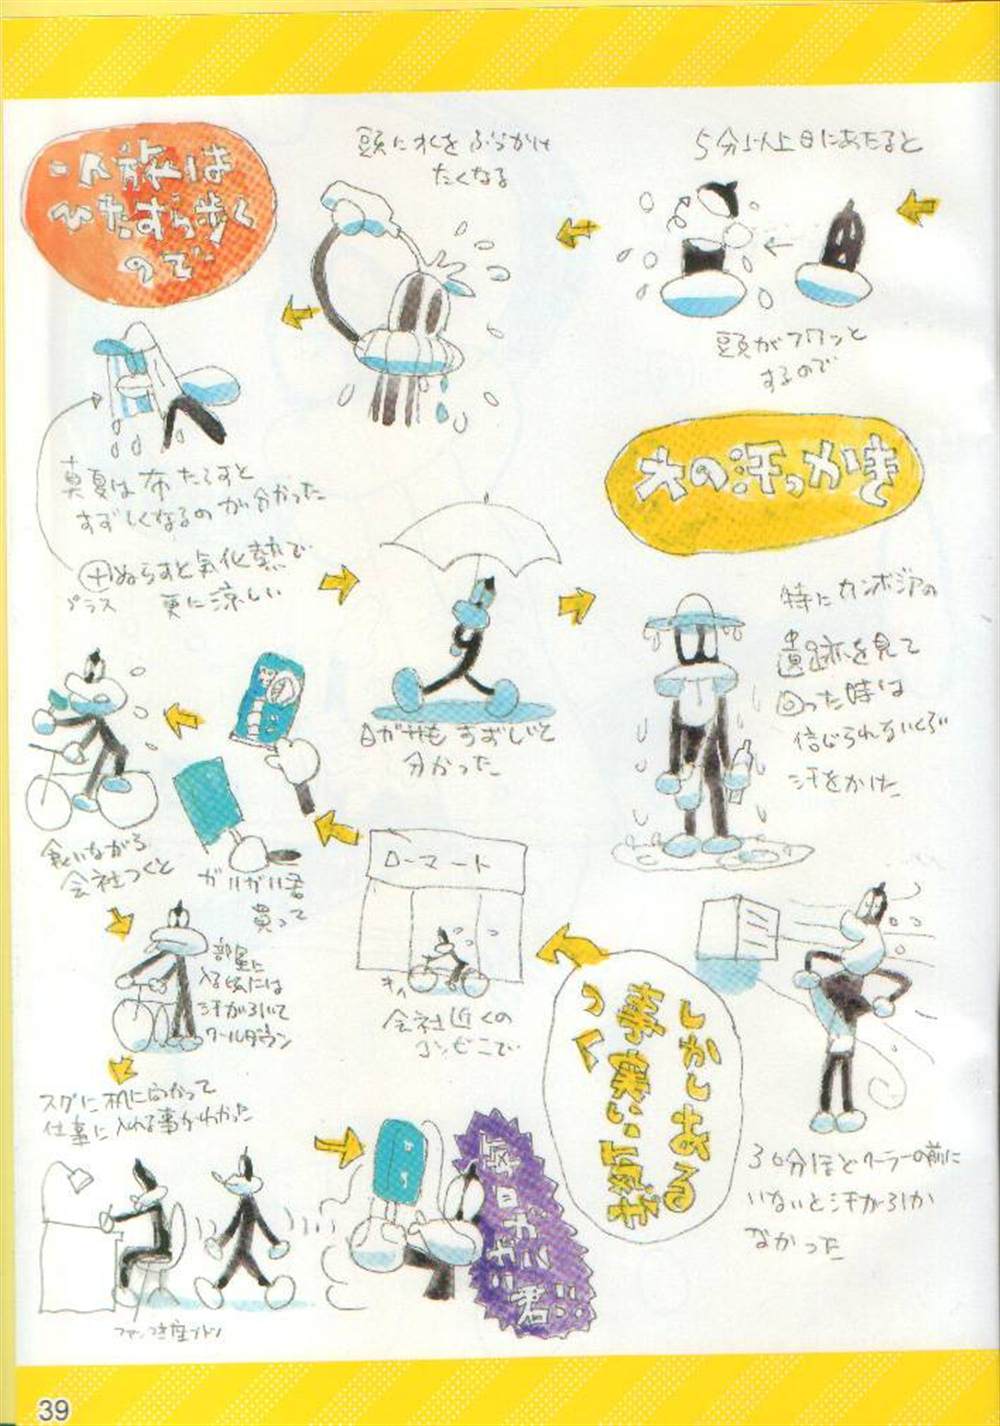 5分以上日にあたると
頭がフワッと
するので
頭に水をぶっかけ
たくなる
一人旅は
ひたすら歩く
ので
真夏は布たらすと
すずしくなるのが分かった
＋ぬらすと気化熱で
プラス
更に涼しい
日ガサもすずしいと
分かった
大の汗っかき
特にカンボジアの
遺跡を見て
回った時は
信じられないくらい
汗をかいた
30分ほどクーラーの前に
いないと汗が引か
なかった
しかしある
事実に気が
つく
ローマート
キィ
会社近くの
コンビニで
ガリガリ君
買って
食いながら
会社つくと
部屋に
入る頃には
汗が引いて
クールダウン
スグに机に向かって
仕事に入れる事がわかった
ファンつき座ブトン
毎日ガリガリ君